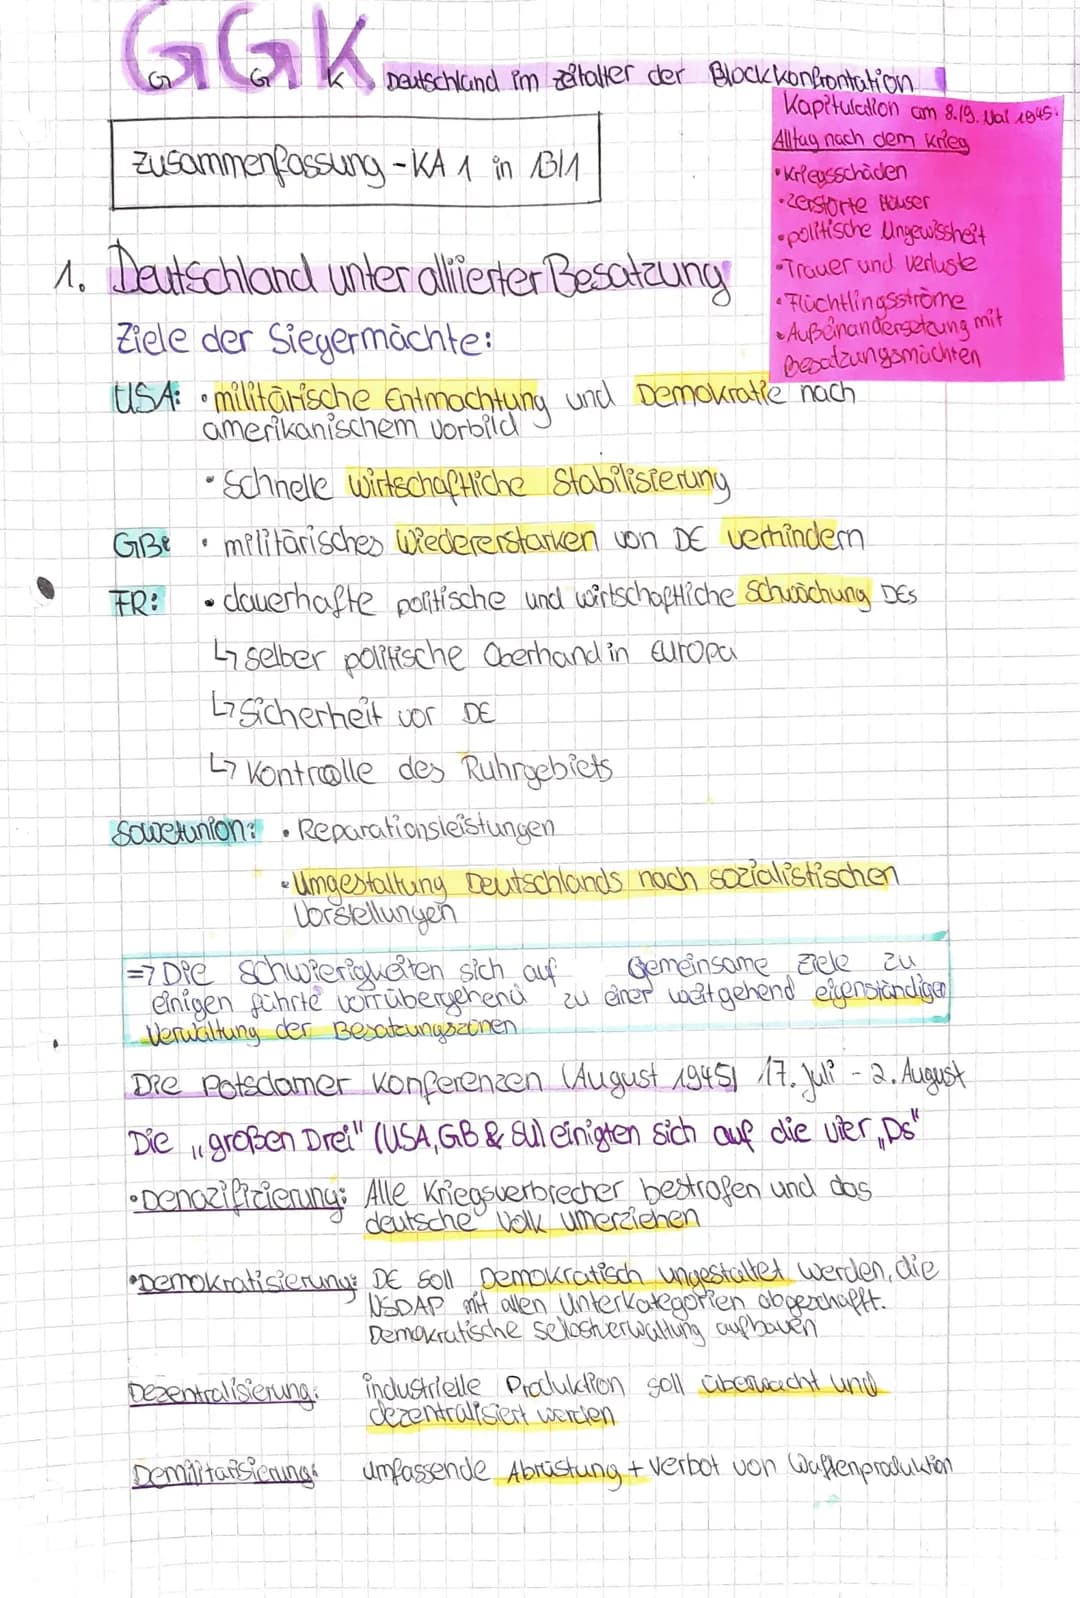 GGK
G G K Deutschland im Zeitalter der Blockkonfrontation
Zusammenfassung - KA 1 in 13/1
Kapitulation am 8./9. Mai 1945:
Alltag nach dem Krieg
• Kriegsschäden
• zerstörte Häuser
• politische Ungewissheit
• Trauer und Verluste
• Flüchtlingsströme
• Außeinandersetzung mit
Besatzungsmächten
1. Deutschland unter alliierter Besatzung
Ziele der Siegermächte:
USA: • militärische Entmachtung und Demokratie nach
amerikanischem Vorbild
• Schnelle wirtschaftliche Stabilisierung
GB: • militärisches Wiedererstarken von DE verhindern
FR: • dauerhafte politische und wirtschaftliche Schwächung DEs
↳ selber politische Oberhand in Europa
↳ Sicherheit vor DE
↳ Kontrolle des Ruhrgebiets
Sowetunion: • Reparationsleistungen
• Umgestaltung Deutschlands nach sozialistischen
Vorstellungen
=> Die Schwierigkeiten sich auf Gemeinsame Ziele zu
einigen führte vorrübergehend zu einer weitgehend eigenständigen
Verwaltung der Besatzungszonen
Die Potsdamer Konferenzen (August 1945) 17. Juli - 2. August
Die „großen Drei" (USA, GB & SU) einigten sich auf die vier „Ds"
• Denazifizierung: Alle Kriegsverbrecher bestrafen und das
deutsche Volk umerziehen
• Demokratisierung: DE soll Demokratisch ungestaltet werden, die
NSDAP mit allen Unterkategorien abgeschafft.
Demokratische Selbstverwaltung aufbauen
Dezentralisierung: industrielle Produktion soll überwacht und
dezentralisiert werden
Demilitarisierung: umfassende Abrüstung + Verbot von Waffenproduktion